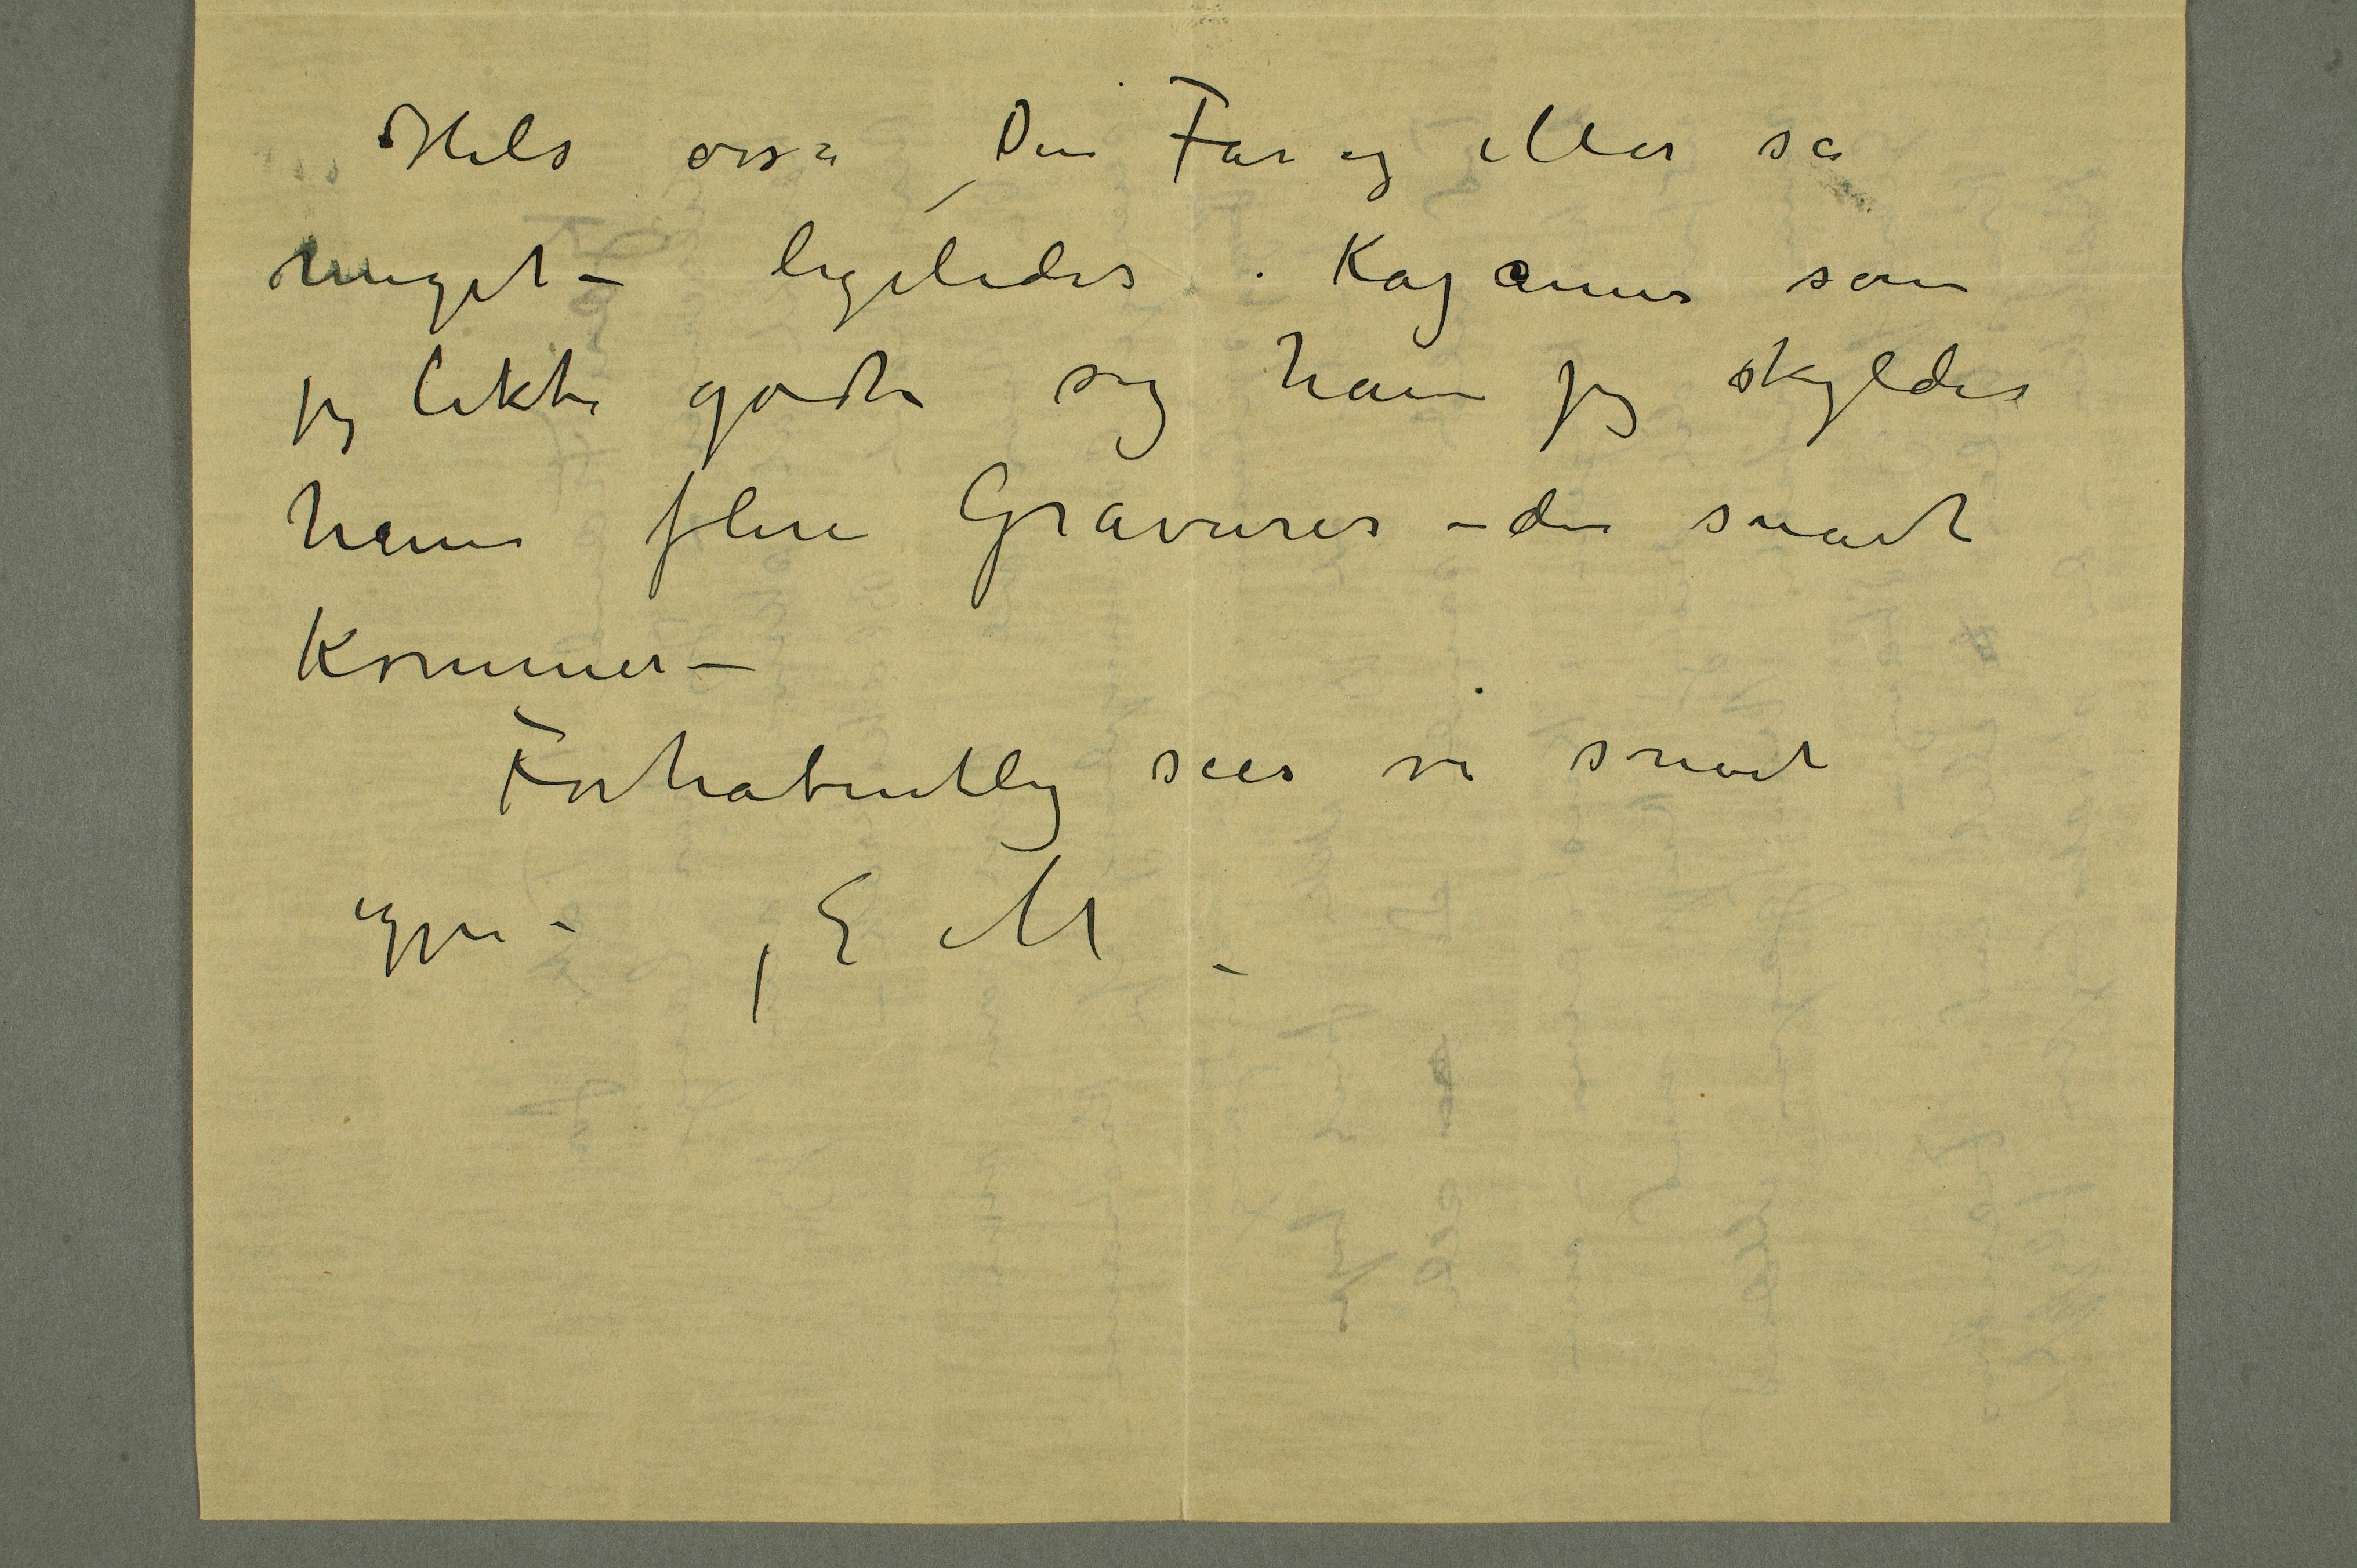 Hils også Din Far og Mor så
meget – ligeledes Kaysanner som
jeg likte godt sig ham jeg skylder
ham flere Gravurer – der snart
kommer –
Forhåbentlig sees vi snart
igjen – E M –